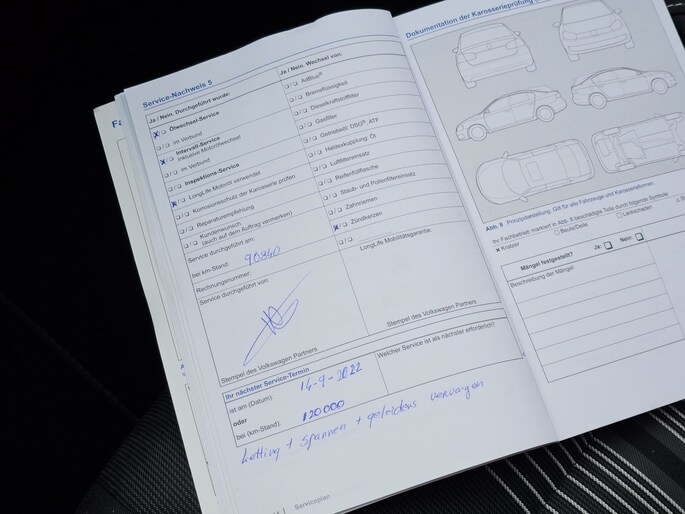 Service-Nachweis 5
Ja / Nein. Durchgeführt wurde:
Ölwechsel-Service
im Verbund
Intervall-Service
inklusive Motorölwechsel
im Verbund
Inspektions-Service
LongLife Motoröl verwendet
Korrosionsschutz der Karosserie prüfen
Reparaturempfehlung
Kundenwunsch
(auch auf dem Auftrag vermerken)
Service durchgeführt am:
bei km-Stand: 90840
Rechnungsnummer:
Service durchgeführt von:
Stempel des Volkswagen Partners
Ja / Nein. Wechsel von:
AdBlue®
Bremsflüssigkeit
Dieselkraftstofffilter
Gasfilter
Getriebeöl: DSG®, ATF
Haldexkupplung: Öl
Luftfiltereinsatz
Reifenfüllflasche
Staub- und Pollenfiltereinsatz
Zahnriemen
Zündkerzen
LongLife Mobilitätsgarantie:
Stempel des Volkswagen Partners
Ihr nächster Service-Termin
ist am (Datum): 14-9-2022
oder
bei (km-Stand): 120000
Welcher Service ist als nächster erforderlich?
ketting + spannen + geleiders vervangen
Serviceplan
Dokumentation der Karosserieprüfung
Abb. 8 Prinzipdarstellung: Gilt für alle Fahrzeuge und Karosserieformen.
Fachbetrieb markiert in Abb. 8 beschädigte Teile durch folgende Symbole:
× Kratzer
Beule/Delle
Lackschaden
Mängel festgestellt?
Ja:
Nein:
Beschreibung der Mängel: